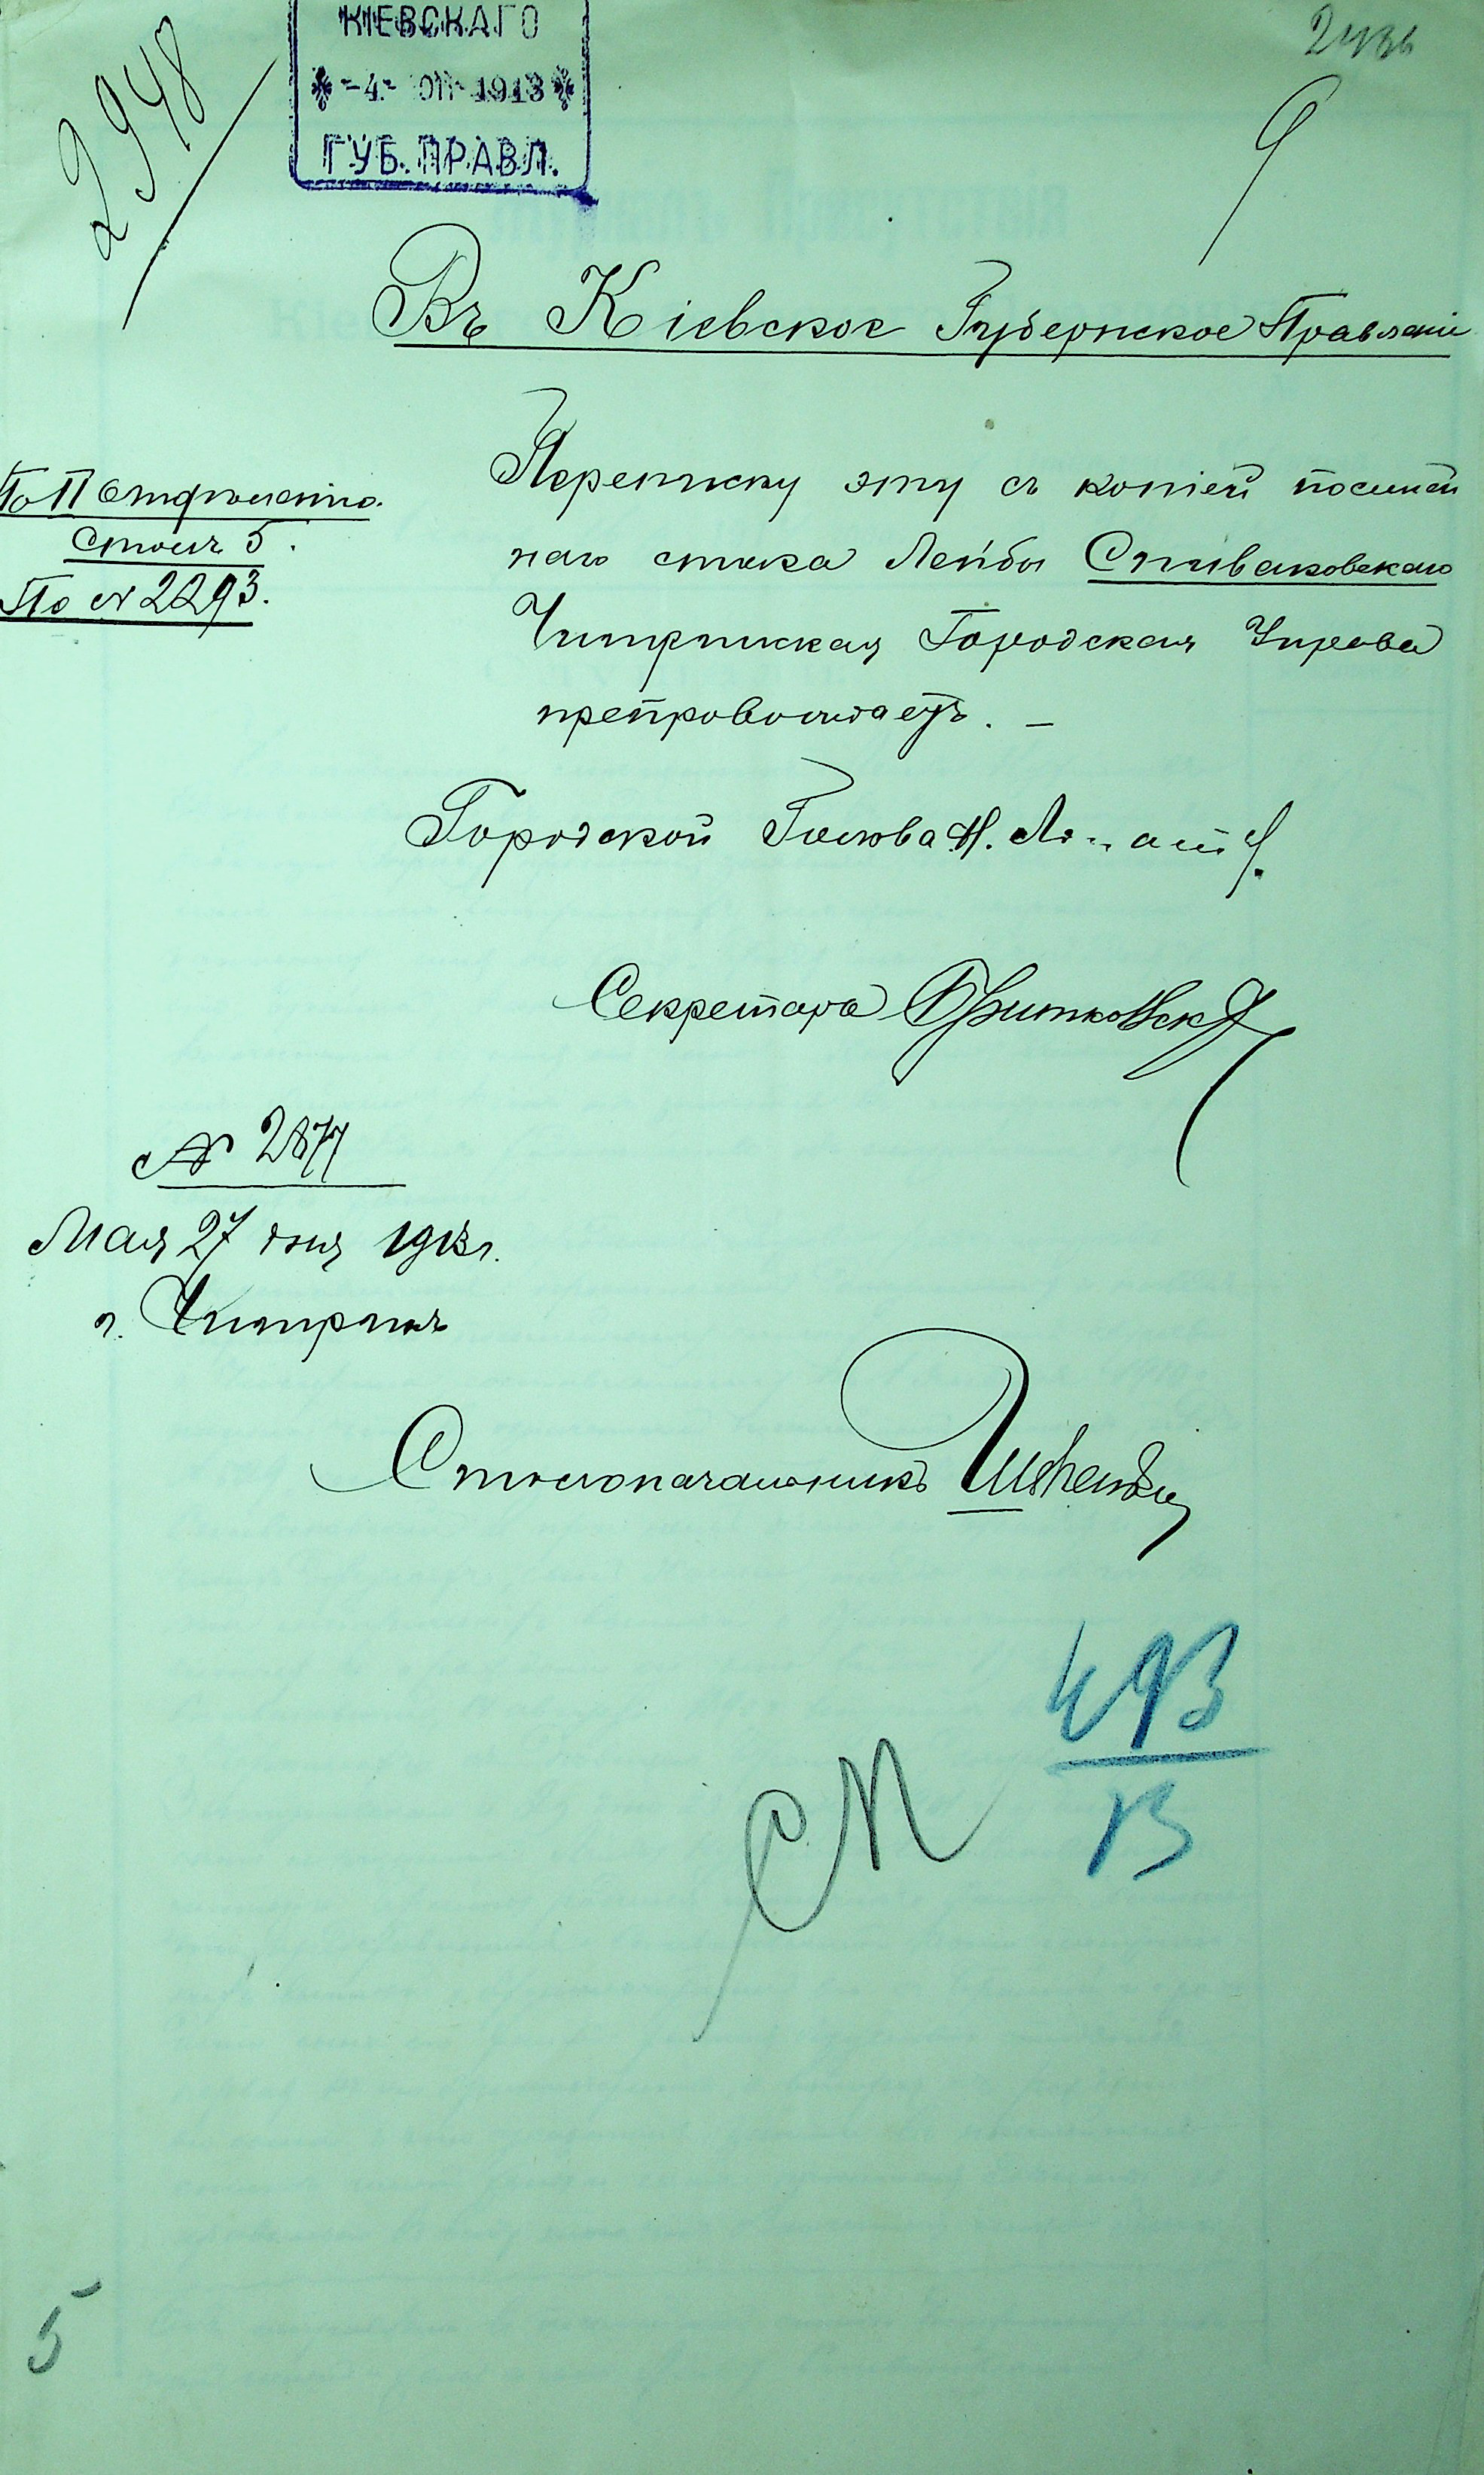 2948
КІЕВСКАГО
-4- 1913
ГУБ. ПРАВЛ.
9
Въ Кіевское Губернское Правленіе
По II Отдѣленію.
Столъ 5.
По № 2293.
Переписку эту съ копіей посемей
наго списка Лейбы Спиваковскаго
Чигиринская Городская Управа
препровождаетъ. —
Городской Голова Н.
Секретарь
№ 2877
Мая 27 дня 1913 г.
г. Чигиринъ
Столоначальникъ
СП
493
13
5